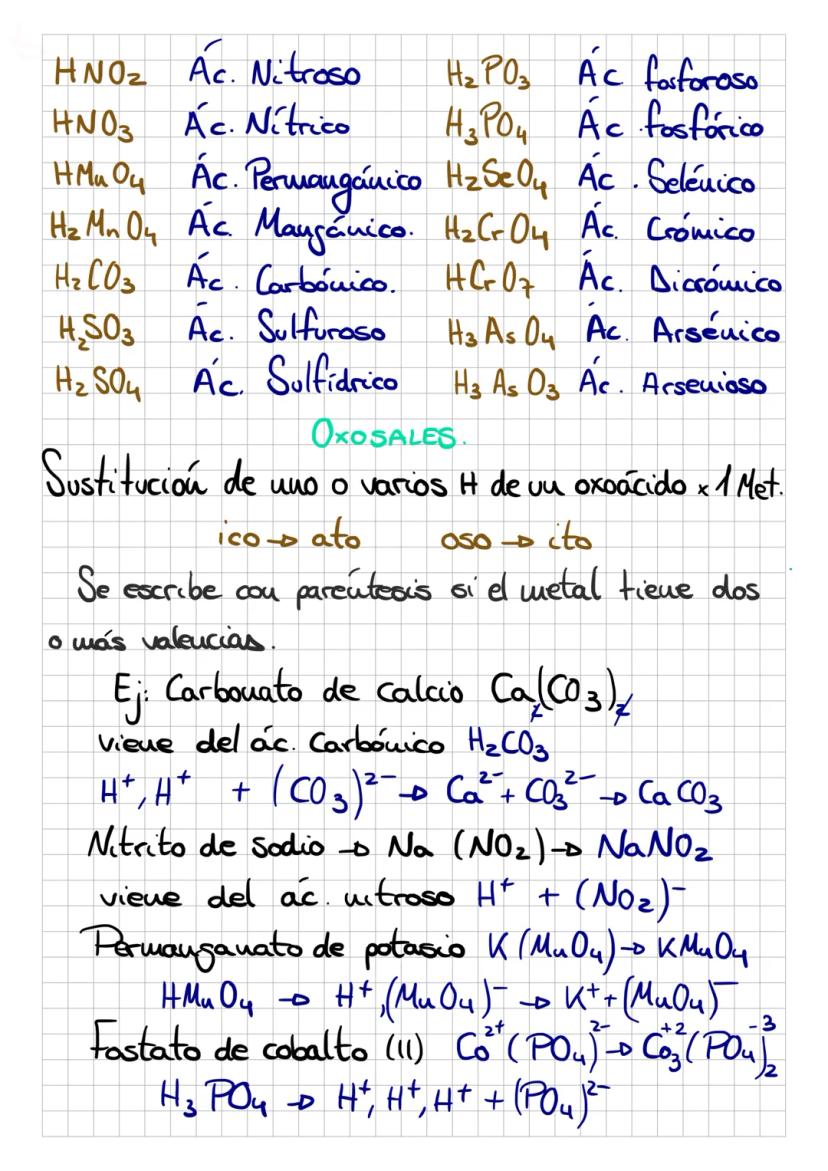 HNO₂ Ác. Nitroso H₂PO₃ Ác fosforoso
HNO₃ Ác. Nítrico H₃PO₄ Ác. fosfórico
HMnO₄ Ác. Permangánico H₂SeO₄ Ác. Selénico
H₂MnO₄ Ác. Mangánico. H₂CrO₄ Ác. Crómico
H₂CO₃ Ác. Carbónico. HCrO₇ Ác. Dicrómico
H₂SO₃ Ác. Sulfuroso H₃AsO₄ Ác. Arsénico
H₂SO₄ Ác. Sulfídrico H₃AsO₃ Ác. Arsenioso
OXOSALES.
Sustitución de uno o varios H de un oxoácido x 1 Met.
ico → ato oso → ito
Se escribe con paréntesis si el metal tiene dos
o más valencias.
Ej: Carbonato de calcio Ca₂(CO₃)₂
viene del ác. Carbónico H₂CO₃
H⁺, H⁺ + (CO₃)²⁻ → Ca²⁻ + CO₃²⁻ → CaCO₃
Nitrito de sodio → Na (NO₂) → NaNO₂
viene del ác. nitroso H⁺ + (NO₂)⁻
Permanganato de potasio K(MnO₄) → KMnO₄
HMnO₄ → H⁺,(MnO₄)⁻ → K⁺ + (MnO₄)⁻
Fosfato de cobalto (II) Co²⁺(PO₄)²⁻ → Co₃⁺²(PO₄)₂⁻³
H₃PO₄ → H⁺, H⁺, H⁺ + (PO₄)²⁻